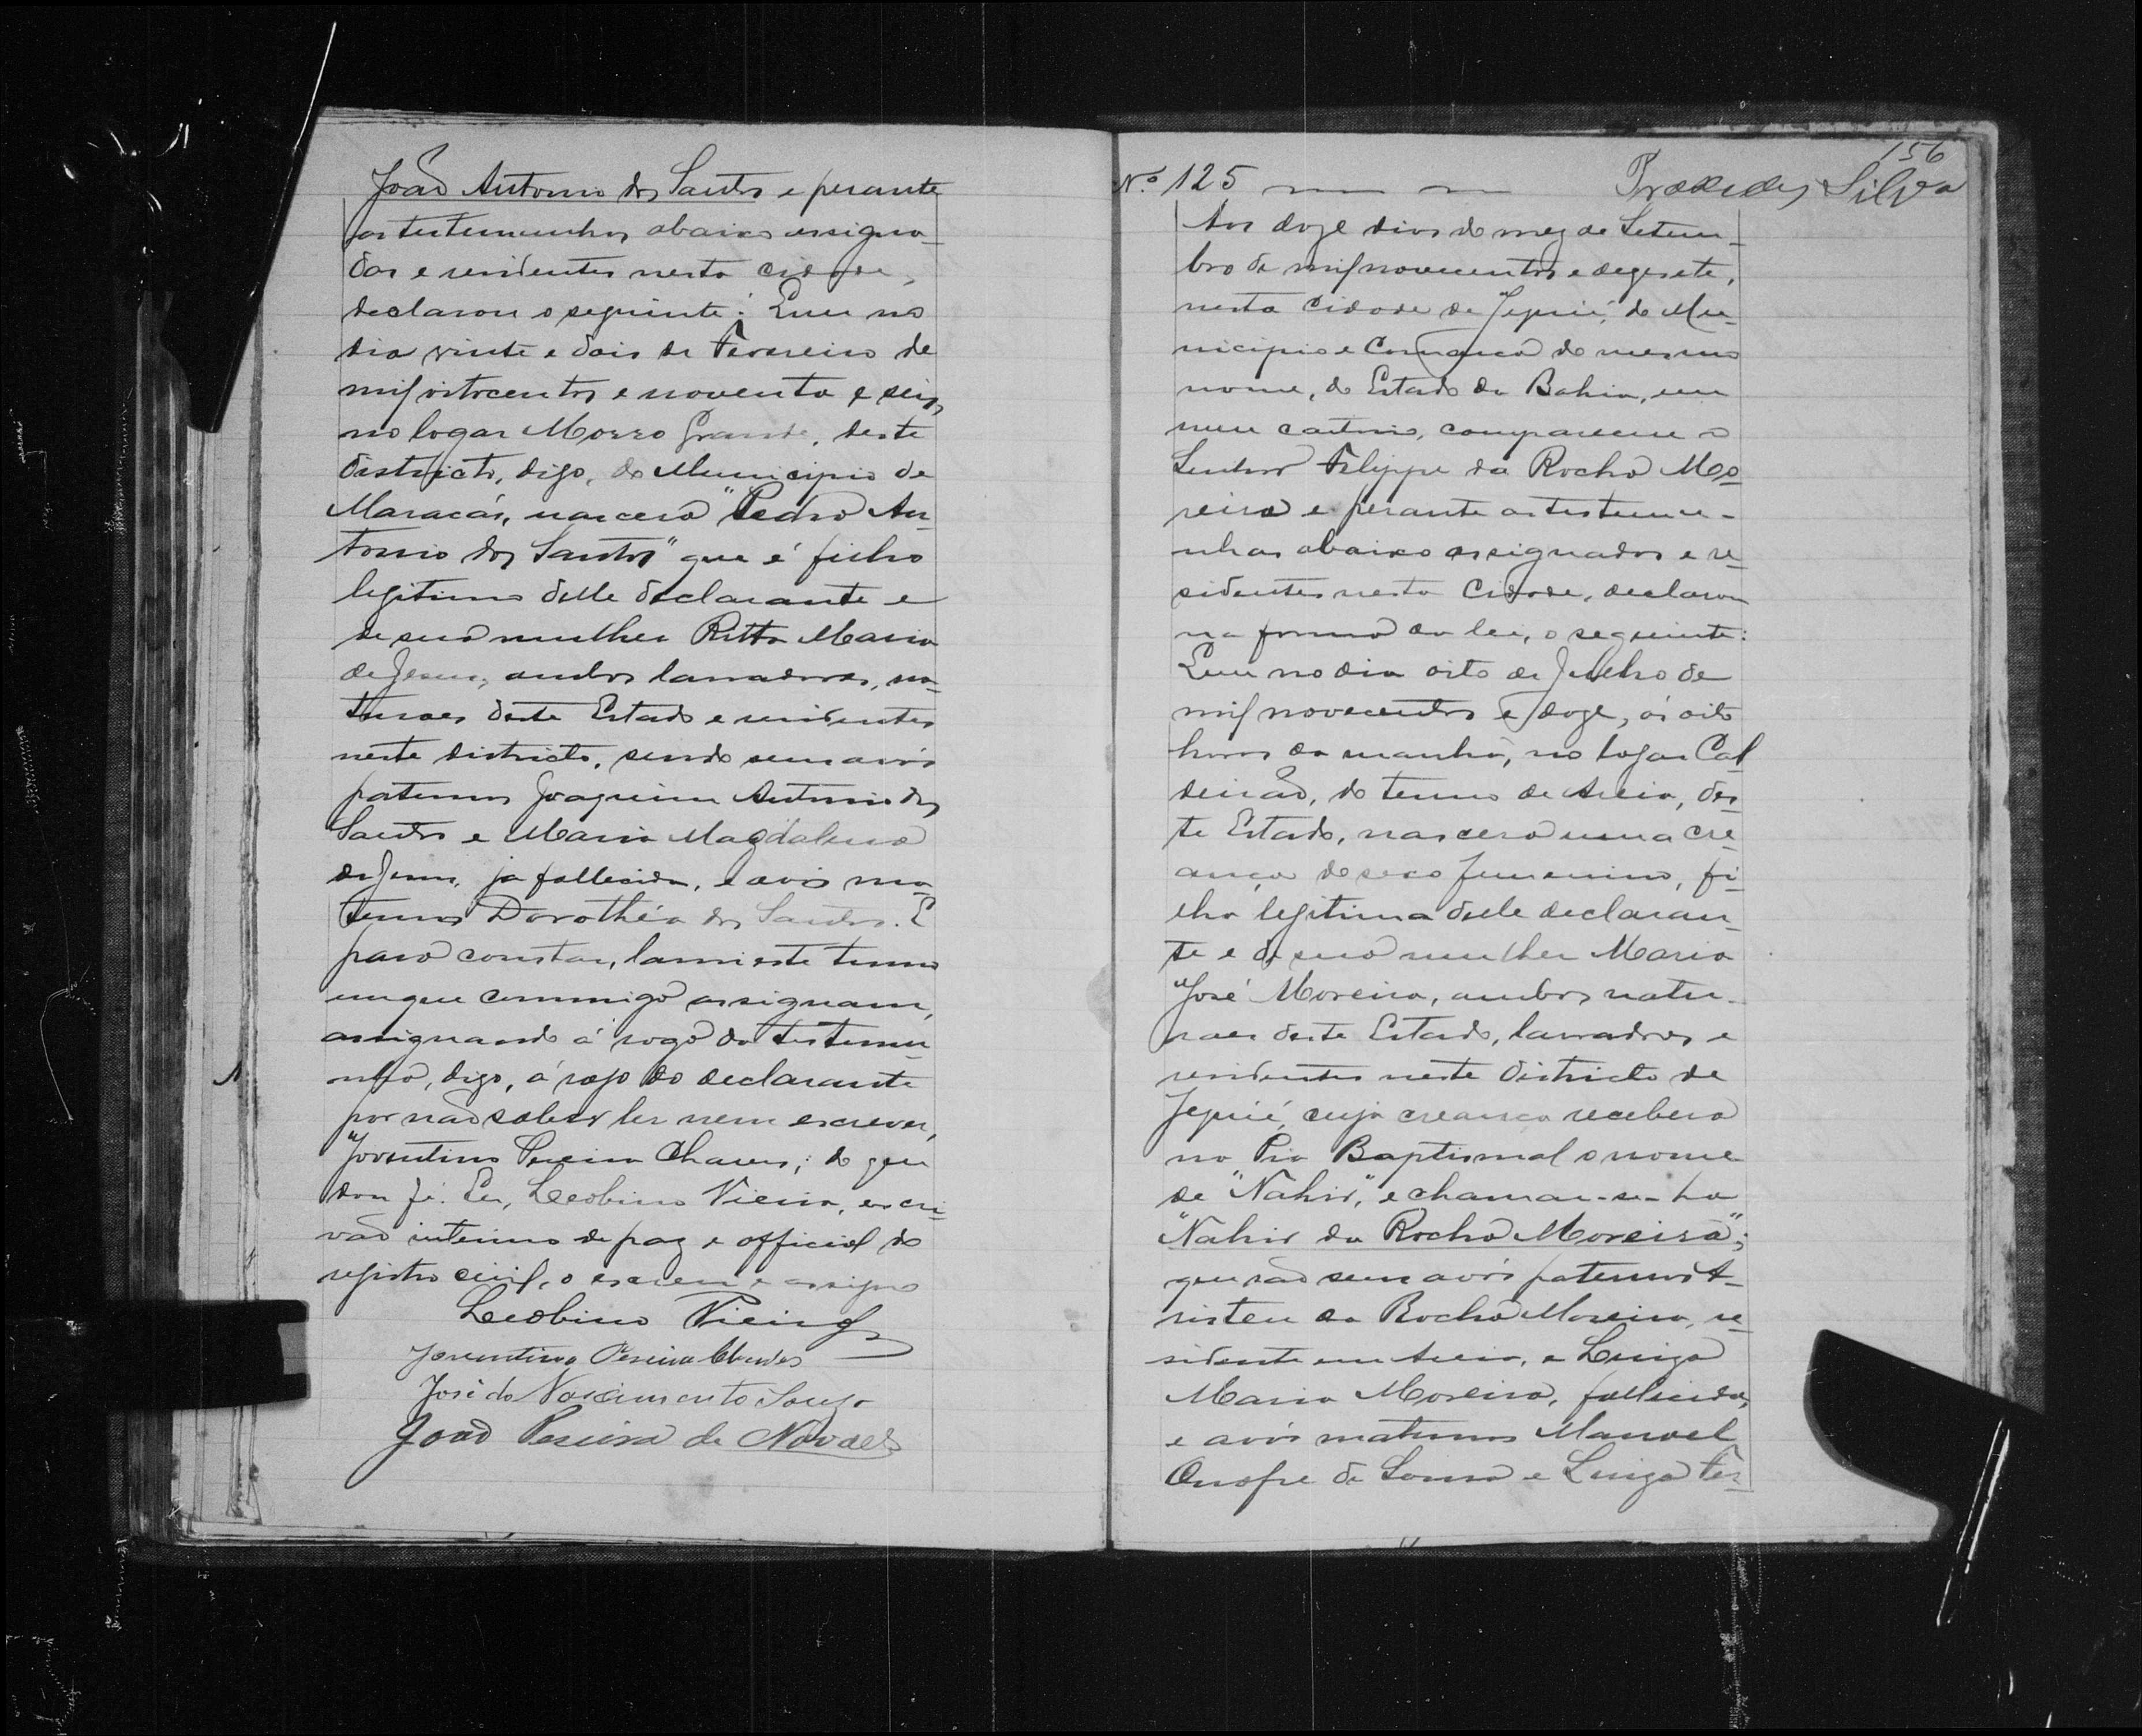 João Antonio dos Santos e perante
as testemunhas abaixo assigna-
das e residentes nesta cidade,
declarou o seguinte: Que no
dia vinte e dois de Fevereiro de
mil oitocentos e noventa e seis,
no logar Morro Grande, deste
districto, digo, do Municipio de
Maracás, nascera "Pedro An-
tonio dos Santos" que é filho
legitimo delle declarante e
de sua mulher Ritta Maria
de Jesus, ambos lavradores, na-
turaes deste Estado e residentes
neste districto, sendo seus avós
paternos Joaquim Antonio dos
Santos e Maria Magdalena
de Jesus, já fallecida, e avós ma-
ternos Dorothéa dos Santos. E
para constar, lavrei este termo
em que commigo assignam,
assignando á rogo da testemu-
nha, digo, á rogo do declarante
por não saber ler nem escrever,
Joventino Pereira Chaves; do que
dou fé. Eu, Leobino Vieira, escri-
vão interino de paz e official do
registro civil, o escrevi e assigno
Leobino Vieira
Joventino Pereira Chaves
José do Nascimento Souza
João Pereira de Novaes
156
Nº 125 Praxedes Silva
Aos doze dias do mez de Setem-
bro de mil novecentos e dezesete,
nesta Cidade de Jequié, do Mu-
nicipio e Comarca do mesmo
nome, do Estado da Bahia, em
meu cartorio, compareceu o
Senhor Filippe da Rocha Mo-
reira e perante as testemu-
nhas abaixo assignadas e re-
sidentes nesta Cidade, declarou
na forma da lei, o seguinte:
Que no dia oito de Julho de
mil novecentos e doze, ás oito
horas da manhã, no logar Cal-
deirão, do termo de Areia, des-
te Estado, nascera uma cre-
ança do sexo femenino, fi-
lha legitima delle declaran-
te e de sua mulher Maria
José Moreira, ambos natu-
raes deste Estado, lavradores e
residentes neste districto de
Jequié, cuja creança recebera
na Pia Baptismal o nome
de "Nahir," e chamar-se-ha
"Nahir da Rocha Moreira";
que são seus avós paternos A-
risteu da Rocha Moreira, re-
sidente em Areia, e Luiza
Maria Moreira, fallecida,
e avós maternos Manoel
Onofre de Souza e Luiza